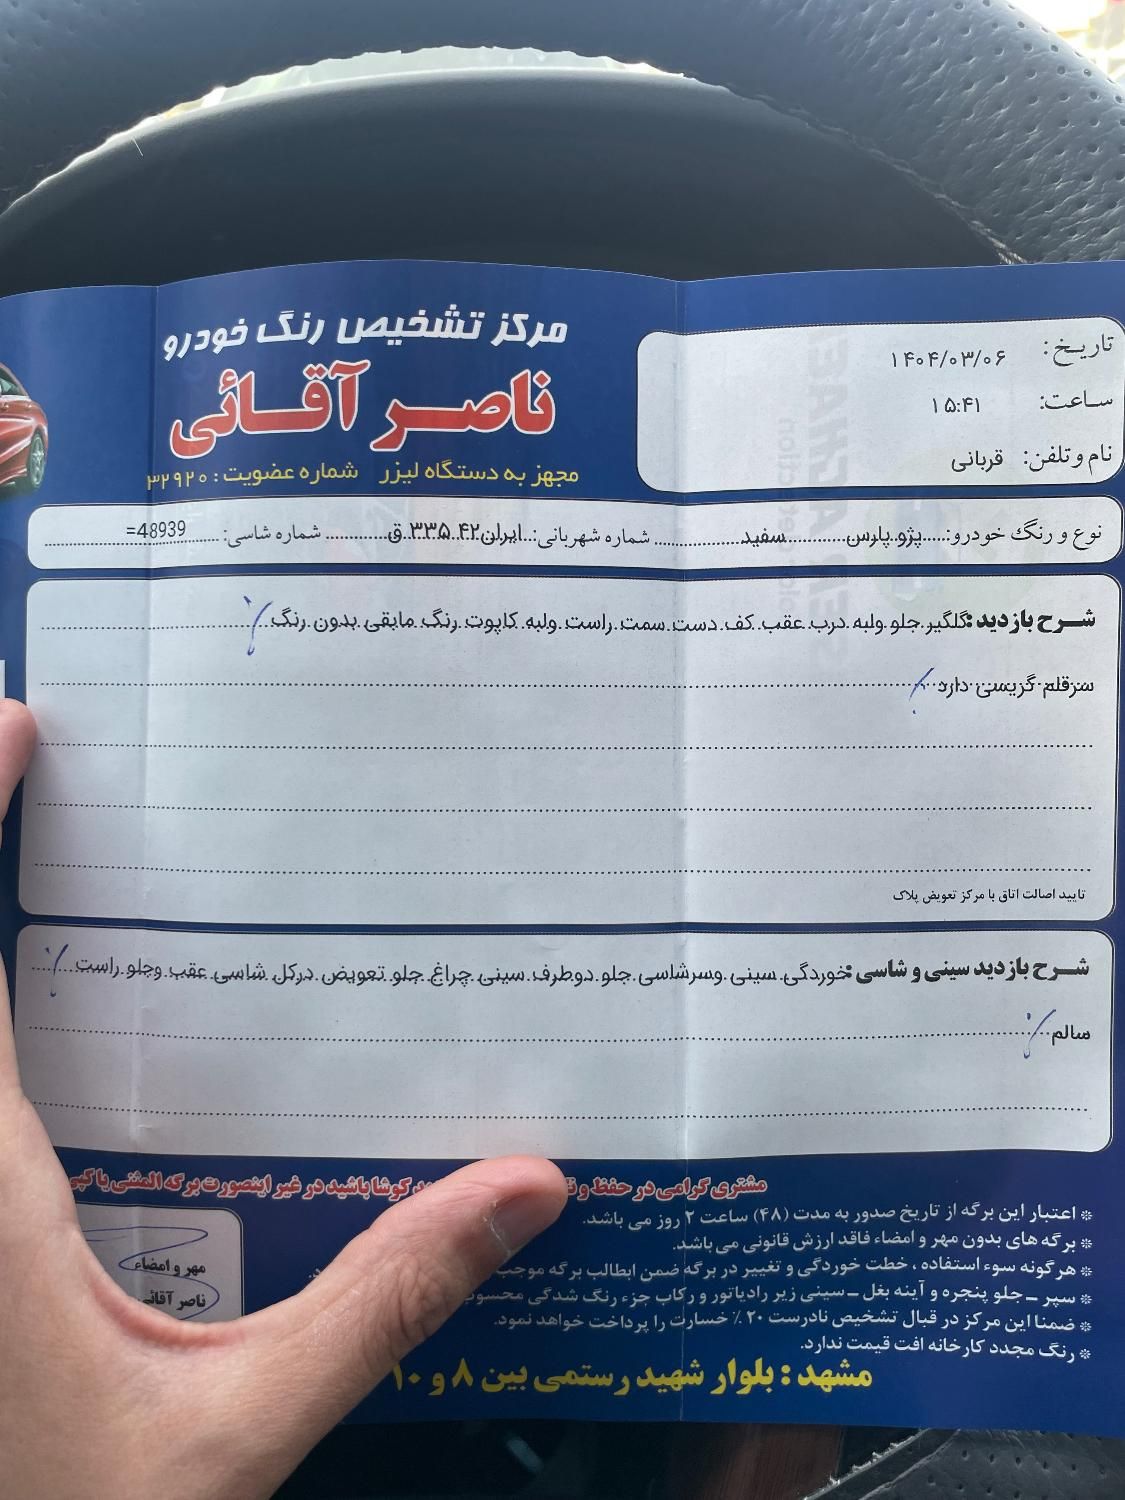 مرکز تشخیص رنگ خودرو
ناصر آقائی
مجهز به دستگاه لیزر شماره عضویت: ۳۲۹۲۰
تاریخ: ۱۴۰۴/۰۳/۰۶
ساعت: ۱۵:۴۱
نام و تلفن: قربانی
نوع و رنگ خودرو: پژو پارس سفید شماره شهربانی: ایران ۴۲ ۳۳۵ ق شماره شاسی: 48939=
شرح بازدید: گلگیر جلو ولبه درب عقب کف دست سمت راست ولبه کاپوت رنگ مابقی بدون رنگ
سرقلم گریسی دارد
تایید اصالت اتاق با مرکز تعویض پلاک
شرح بازدید سینی و شاسی: خوردگی سینی وسرشاسی جلو دوطرف سینی چراغ جلو تعویض درکل شاسی عقب وجلو راست
سالم
مشتری گرامی در حفظ و کوشا باشید در غیر اینصورت برگه المثنی یا کپی
* اعتبار این برگه از تاریخ صدور به مدت (۴۸) ساعت ۲ روز می باشد.
* برگه های بدون مهر و امضاء فاقد ارزش قانونی می باشد.
* هرگونه سوء استفاده ، خطت خوردگی و تغییر در برگه ضمن ابطالب برگه موجب
* سپر - جلو پنجره و آینه بغل - سینی زیر رادیاتور و رکاب جزء رنگ شدگی محسوب
* ضمنا این مرکز در قبال تشخیص نادرست ۲۰ ٪ خسارت را پرداخت خواهد نمود.
* رنگ مجدد کارخانه افت قیمت ندارد.
مهر و امضاء
ناصر آقائی
مشهد : بلوار شهید رستمی بین ۸ و ۱۰